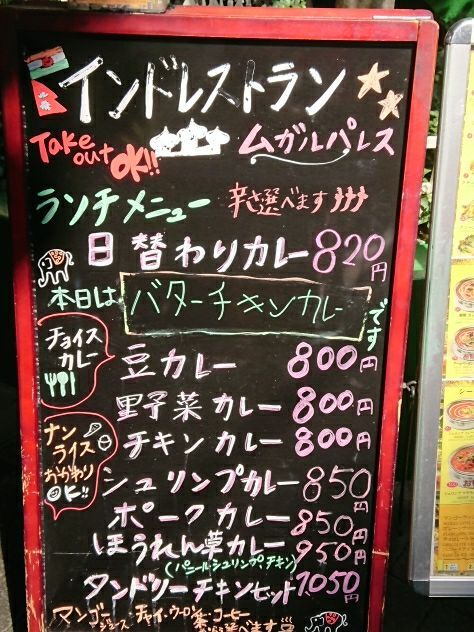 インドレストラン
Take out OK!!
ムガルパレス
ランチメニュー 辛さ選べます
日替わりカレー 820円
本日は バターチキンカレー です
チョイスカレー
豆カレー 800円
野菜カレー 800円
チキンカレー 800円
ナン
ライス
おかわり
OK!!
シュリンプカレー 850円
ポークカレー 850円
ほうれん草カレー 950円
(パニールシュリンプチキン)
タンドリーチキンセット 1,050円
マンゴージュース チャイ・ウーロン茶・コーヒー
選べます